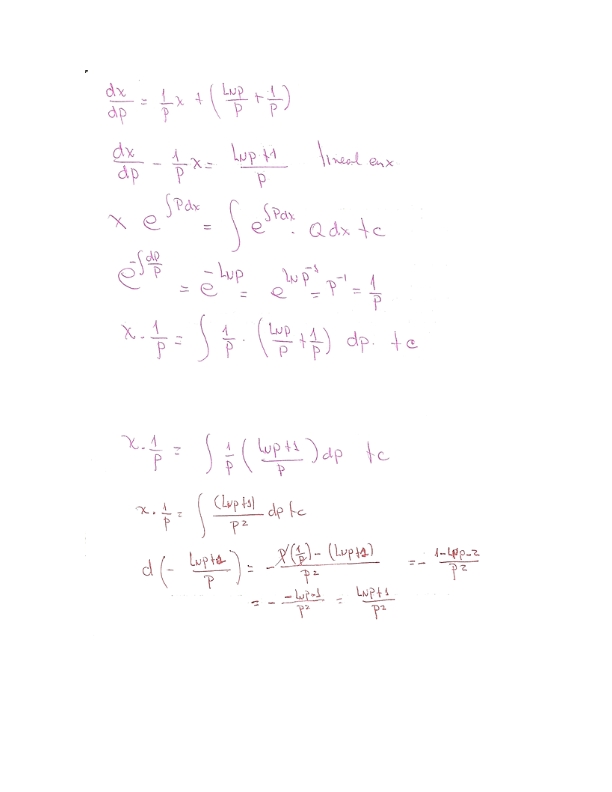 dx/dp = 1/p x + (Lnp/p + 1/p)
dx/dp - 1/p x = Lnp+1/p lineal en x
x e^∫Pdx = ∫ e^∫Pdx · Q dx + c
e^-∫dp/p = e^-Lnp = e^lnp^-1 = p^-1 = 1/p
x · 1/p = ∫ 1/p · (Lnp/p + 1/p) dp. + c
x · 1/p = ∫ 1/p (Lnp+1/p) dp + c
x · 1/p = ∫ (Lnp+1)/p² dp + c
d(- Lnp+2/p) = - p(1/p) - (Lnp+2)/p² = - 1-Lnp-2/p²
= - -Lnp-1/p² = Lnp+1/p²